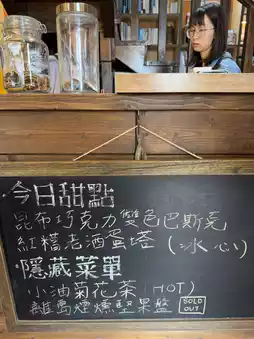 今日甜點
昆布巧克力雙色巴斯克
紅糟老酒蛋塔 (冰心)
隱藏菜單
小油菊花茶 (HOT)
離島煙燻堅果盤 SOLD OUT